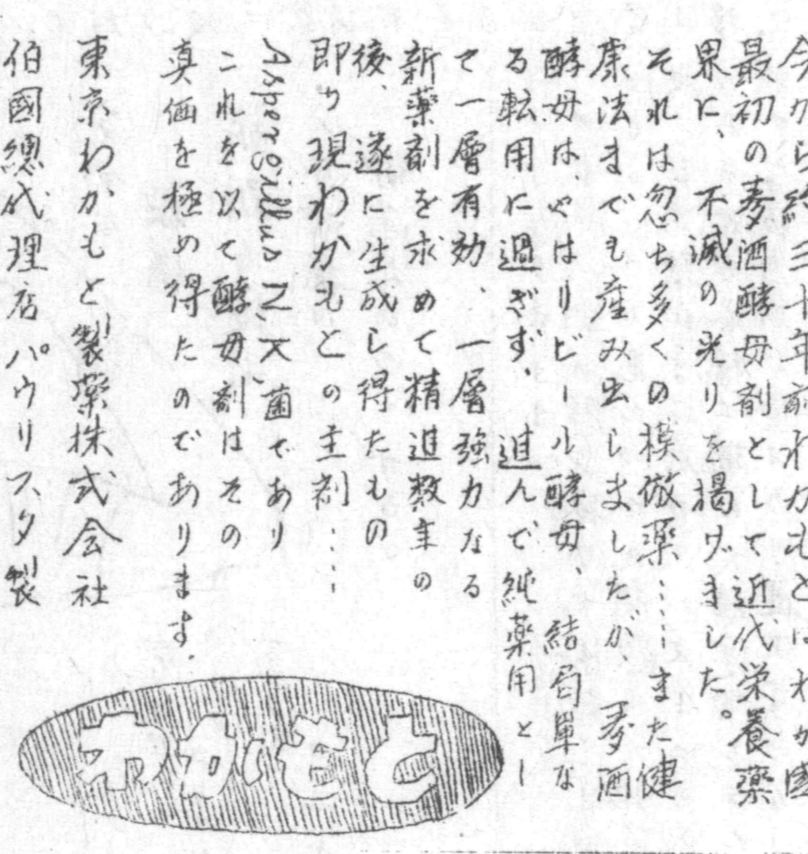 今から約三十年前わかもとはわが国
最初の麦酒酵母剤として近代栄養薬
界に、不滅の光りを掲げました。
それは忽ち多くの模倣薬……また健
康法までも産み出しましたが、麦酒
酵母は、やはりビール酵母、結局単な
る転用に過ぎず、進んで純薬用とし
て一層有効、一層強力なる
新薬剤を求めて精進数年の
後、遂に生成し得たもの
即ち現わかもとの主剤……
Aspergillus N.K.菌であり
これを以て酵母剤はその
真価を極め得たのであります.
東京わかもと製薬株式会社
伯國總代理店パウリスタ製
わかもと